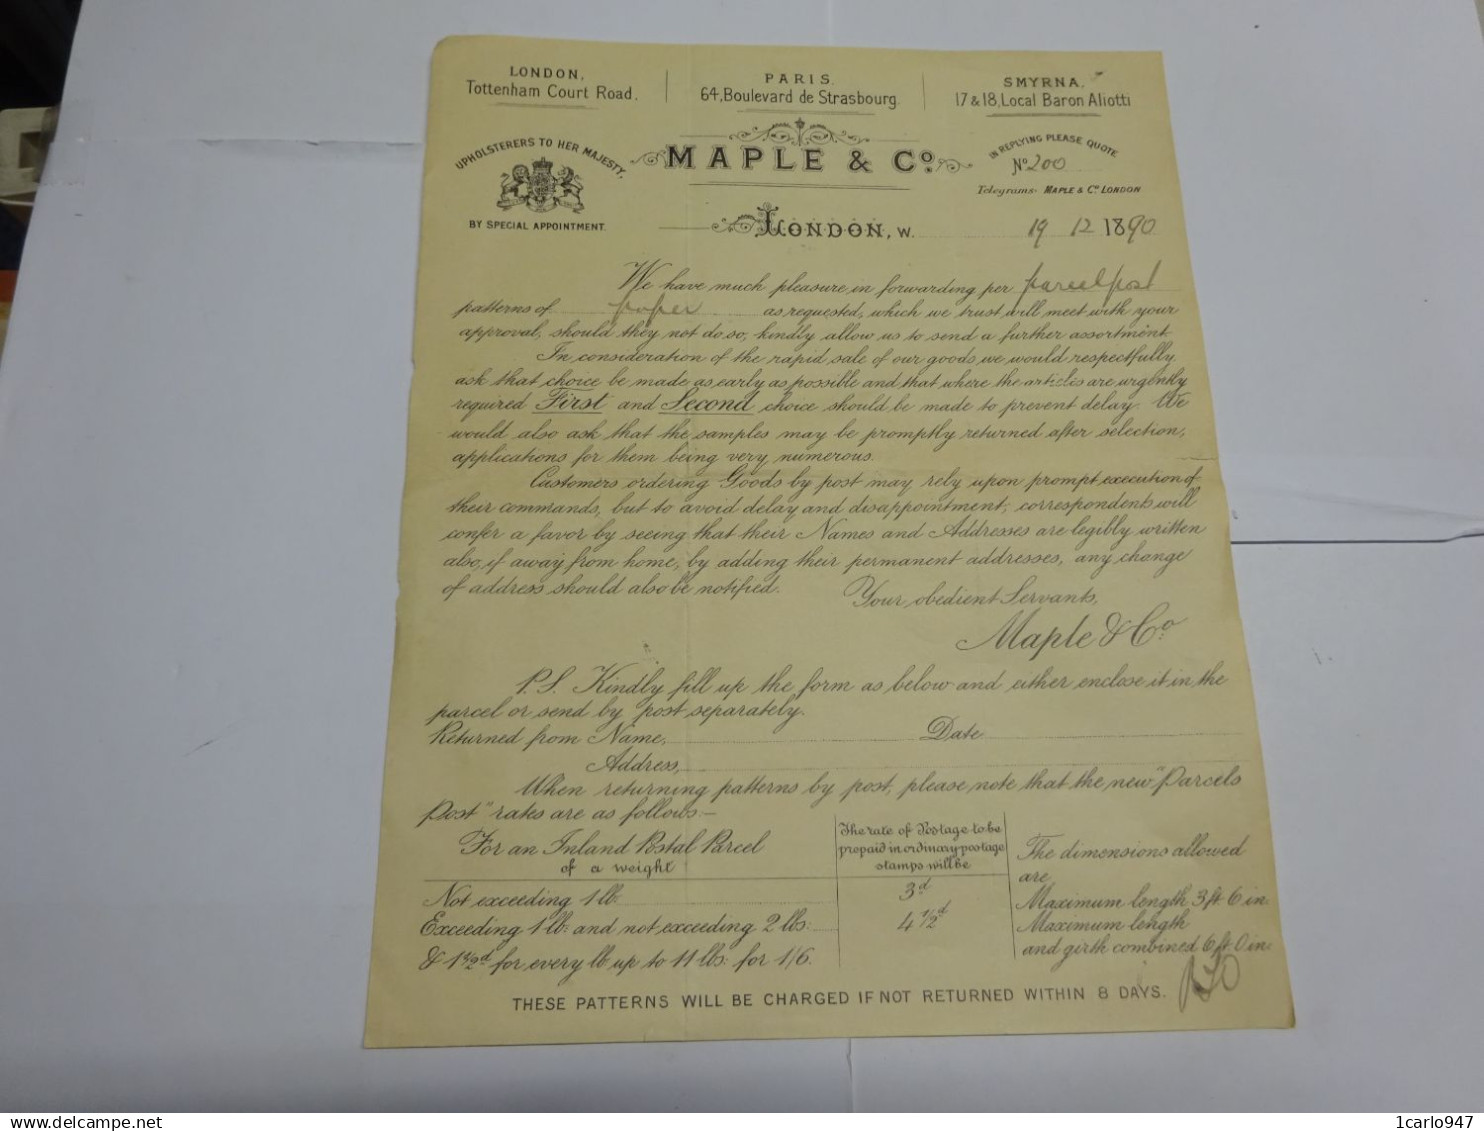 LONDON,
Tottenham Court Road.
PARIS.
64, Boulevard de Strasbourg.
SMYRNA.
17 & 18, Local Baron Aliotti
UPHOLSTERERS TO HER MAJESTY,
BY SPECIAL APPOINTMENT.
MAPLE & Co.
IN REPLYING PLEASE QUOTE
No. 200
Telegrams: MAPLE & Co. LONDON
LONDON, W. 19 12 1890
We have much pleasure in forwarding per parcel post
patterns of paper as requested, which we trust will meet with your
approval, should they not do so, kindly allow us to send a further assortment
In consideration of the rapid sale of our goods we would respectfully
ask that choice be made as early as possible and that where the articles are urgently
required First and Second choice should be made to prevent delay. We
would also ask that the samples may be promptly returned after selection,
applications for them being very numerous.
Customers ordering Goods by post may rely upon prompt execution of
their commands, but to avoid delay and disappointment, correspondents will
confer a favor by seeing that their Names and Addresses are legibly written
also, if away from home, by adding their permanent addresses, any change
of address should also be notified.
Your obedient Servants,
Maple & Co.
P.S. Kindly fill up the form as below and either enclose it in the
parcel or send by post separately.
Returned from Name, Date
Address,
When returning patterns by post, please note that the new "Parcels
Post" rates are as follows:—
For an Inland Postal Parcel
of a weight
The rate of Postage to be
prepaid in ordinary postage
stamps will be
The dimensions allowed
are
Not exceeding 1 lb. 3d
Maximum length 3 ft 6 in.
Exceeding 1 lb: and not exceeding 2 lbs: 4 1/2d
Maximum length
and girth combined 6 ft 0 in:
& 1 1/2d for every lb up to 11 lbs: for 1/6.
THESE PATTERNS WILL BE CHARGED IF NOT RETURNED WITHIN 8 DAYS.
delcampe.net
1carlo947